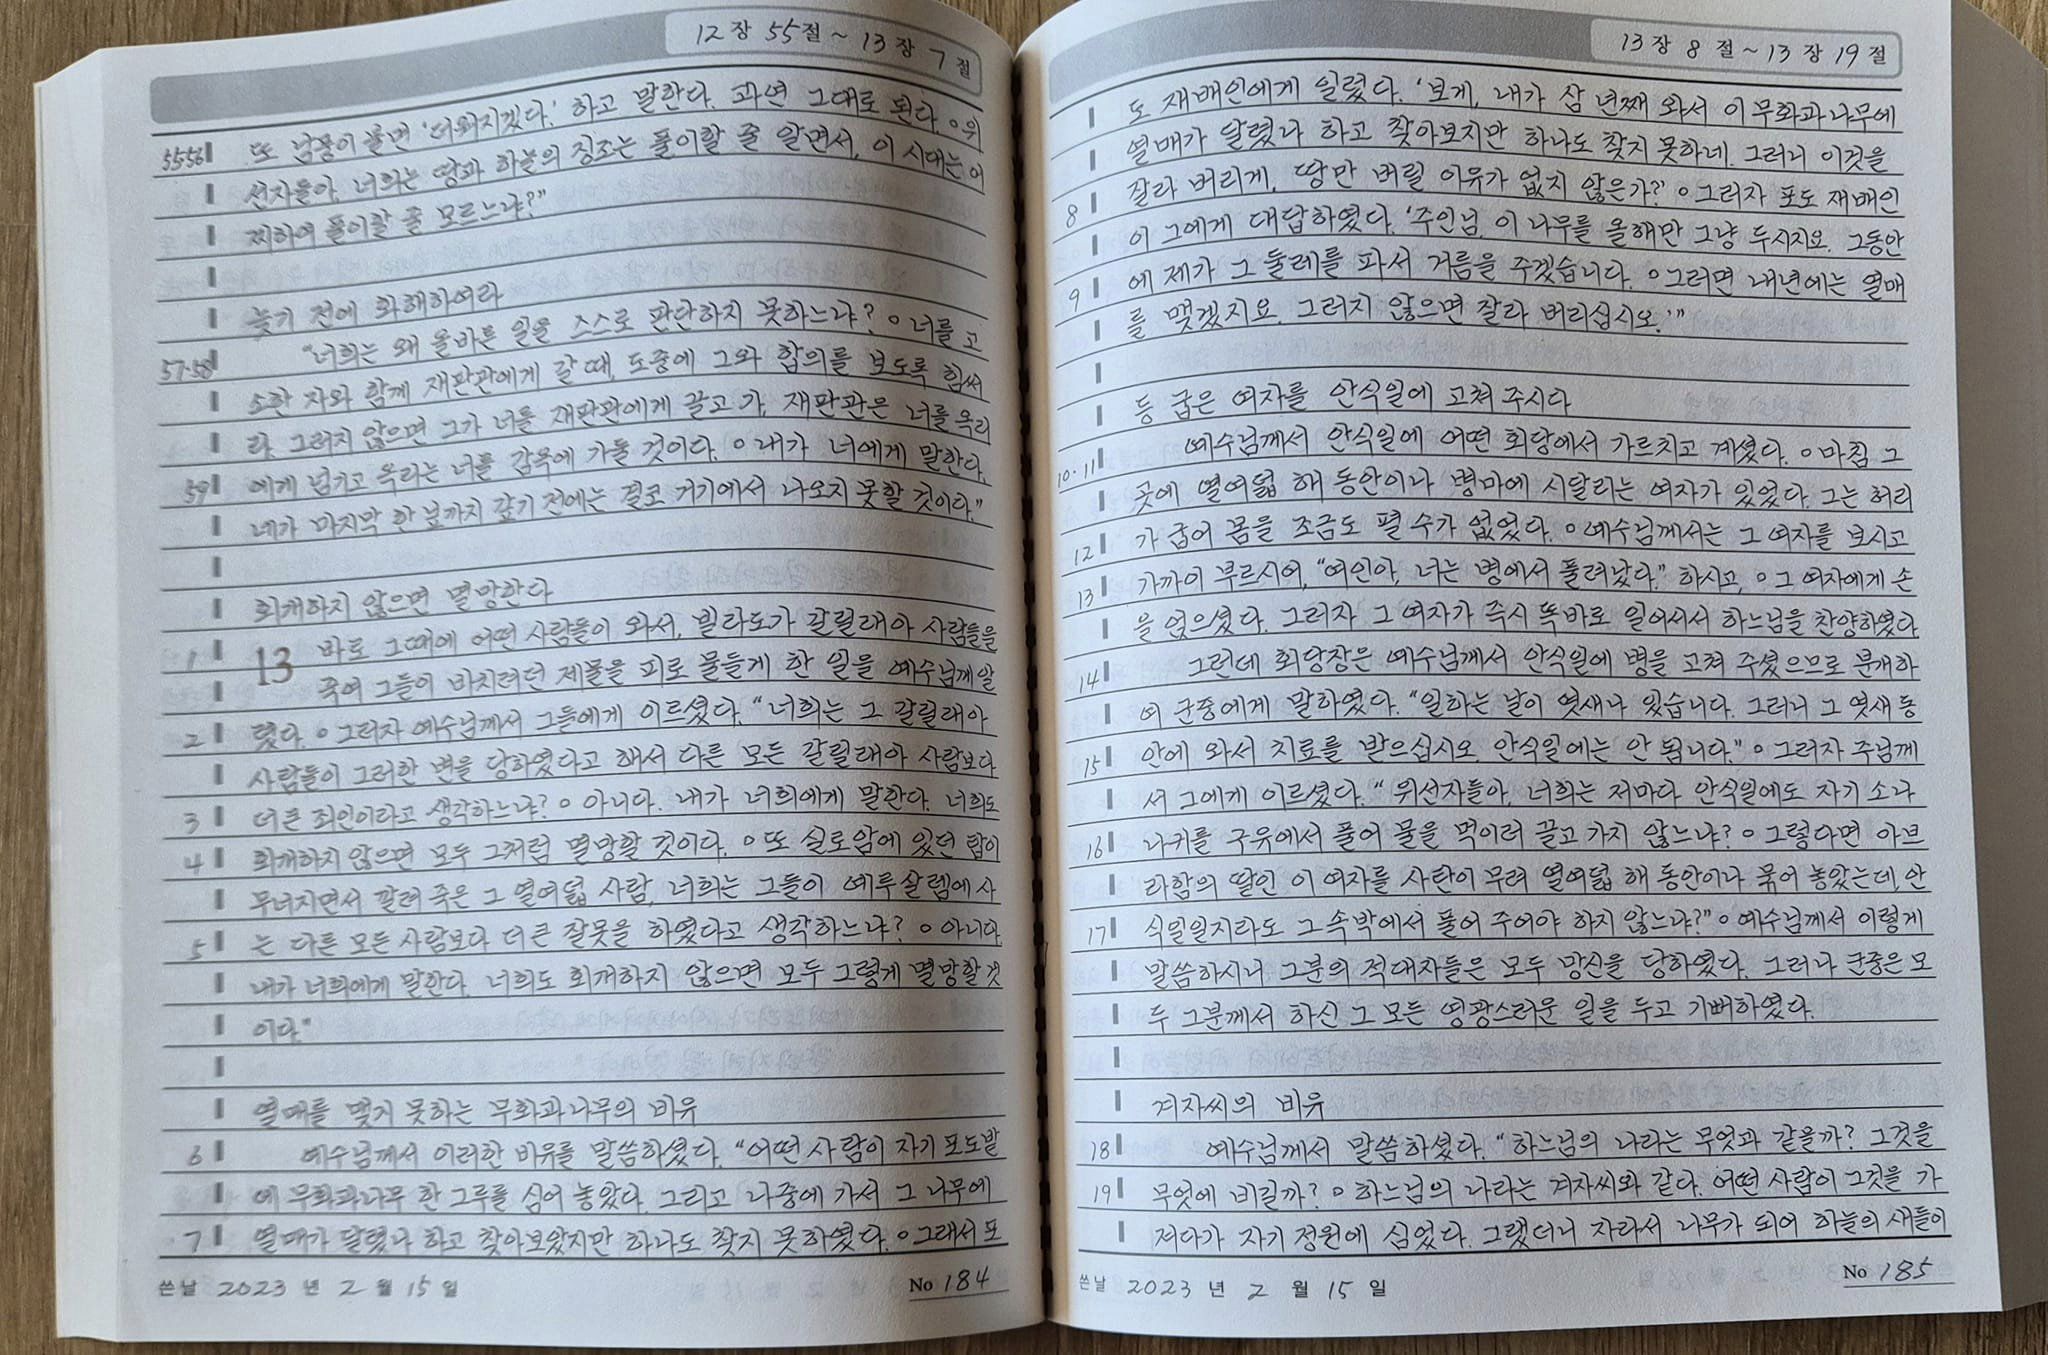 12장 55절 ~ 13장 7절
55·56 또 남풍이 불면 '더워지겠다.' 하고 말한다. 과연 그대로 된다. ○위
선자들아, 너희는 땅과 하늘의 징조는 풀이할 줄 알면서, 이 시대는 어
찌하여 풀이할 줄 모르느냐?"
늦기 전에 화해하여라
57·58 "너희는 왜 올바른 일을 스스로 판단하지 못하느냐? ○너를 고
소한 자와 함께 재판관에게 갈 때, 도중에 그와 합의를 보도록 힘써
라. 그러지 않으면 그가 너를 재판관에게 끌고 가, 재판관은 너를 옥리
59 에게 넘기고 옥리는 너를 감옥에 가둘 것이다. ○내가 너에게 말한다.
네가 마지막 한 닢까지 갚기 전에는 결코 거기에서 나오지 못할 것이다."
회개하지 않으면 멸망한다
1 13 바로 그때에 어떤 사람들이 와서, 빌라도가 갈릴래아 사람들을
죽여 그들이 바치려던 제물을 피로 물들게 한 일을 예수님께 알
2 렸다. ○그러자 예수님께서 그들에게 이르셨다. "너희는 그 갈릴래아
사람들이 그러한 변을 당하였다고 해서 다른 모든 갈릴래아 사람보다
3 더 큰 죄인이라고 생각하느냐? ○아니다. 내가 너희에게 말한다. 너희도
4 회개하지 않으면 모두 그처럼 멸망할 것이다. ○또 실로암에 있던 탑이
무너지면서 깔려 죽은 그 열여덟 사람, 너희는 그들이 예루살렘에 사
5 는 다른 모든 사람보다 더 큰 잘못을 하였다고 생각하느냐? ○아니다.
내가 너희에게 말한다. 너희도 회개하지 않으면 모두 그렇게 멸망할 것
이다."
열매를 맺지 못하는 무화과나무의 비유
6 예수님께서 이러한 비유를 말씀하셨다. "어떤 사람이 자기 포도밭
에 무화과나무 한 그루를 심어 놓았다. 그리고 나중에 가서 그 나무에
7 열매가 달렸나 하고 찾아보았지만 하나도 찾지 못하였다. ○그래서 포
쓴날 2023 년 2 월 15 일 No 184
13장 8절 ~ 13장 19절
도 재배인에게 일렀다. '보게, 내가 삼 년째 와서 이 무화과나무에
열매가 달렸나 하고 찾아보지만 하나도 찾지 못하네. 그러니 이것을
8 잘라 버리게. 땅만 버릴 이유가 없지 않은가?' ○그러자 포도 재배인
이 그에게 대답하였다. '주인님, 이 나무를 올해만 그냥 두시지요. 그동안
9 에 제가 그 둘레를 파서 거름을 주겠습니다. ○그러면 내년에는 열매
를 맺겠지요. 그러지 않으면 잘라 버리십시오.'"
등 굽은 여자를 안식일에 고쳐 주시다
10·11 예수님께서 안식일에 어떤 회당에서 가르치고 계셨다. ○마침 그
곳에 열여덟 해 동안이나 병마에 시달리는 여자가 있었다. 그는 허리
12 가 굽어 몸을 조금도 펼 수가 없었다. ○예수님께서는 그 여자를 보시고
13 가까이 부르시어, "여인아, 너는 병에서 풀려났다." 하시고, ○그 여자에게 손
을 얹으셨다. 그러자 그 여자가 즉시 똑바로 일어서서 하느님을 찬양하였다.
14 그런데 회당장은 예수님께서 안식일에 병을 고쳐 주셨으므로 분개하
여 군중에게 말하였다. "일하는 날이 엿새나 있습니다. 그러니 그 엿새 동
15 안에 와서 치료를 받으십시오. 안식일에는 안 됩니다." ○그러자 주님께
서 그에게 이르셨다. "위선자들아, 너희는 저마다 안식일에도 자기 소나
16 나귀를 구유에서 풀어 물을 먹이러 끌고 가지 않느냐? ○그렇다면 아브
라함의 딸인 이 여자를 사탄이 무려 열여덟 해 동안이나 묶어 놓았는데, 안
17 식일일지라도 그 속박에서 풀어 주어야 하지 않느냐?" ○예수님께서 이렇게
말씀하시니 그분의 적대자들은 모두 망신을 당하였다. 그러나 군중은 모
두 그분께서 하신 그 모든 영광스러운 일을 두고 기뻐하였다.
겨자씨의 비유
18 예수님께서 말씀하셨다. "하느님의 나라는 무엇과 같을까? 그것을
19 무엇에 비길까? ○하느님의 나라는 겨자씨와 같다. 어떤 사람이 그것을 가
져다가 자기 정원에 심었다. 그랬더니 자라서 나무가 되어 하늘의 새들이
쓴날 2023 년 2 월 15 일 No 185